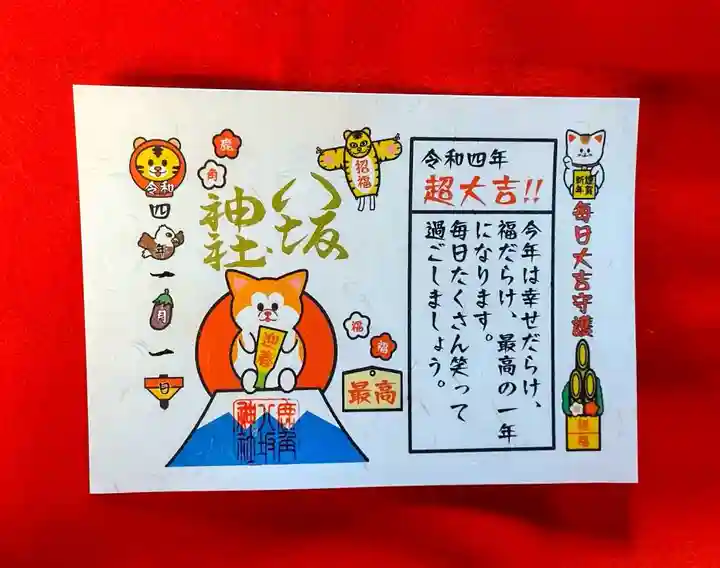 毎日大吉守護
令和四年
超大吉!!
今年は幸せだらけ、
福だらけ、最高の一年
になります。
毎日たくさん笑って
過ごしましょう。
招福
八坂
神社
鹿
角
迎春
福
福
最高
鹿角
八坂
神社
令和
四
年
一
月
一
日